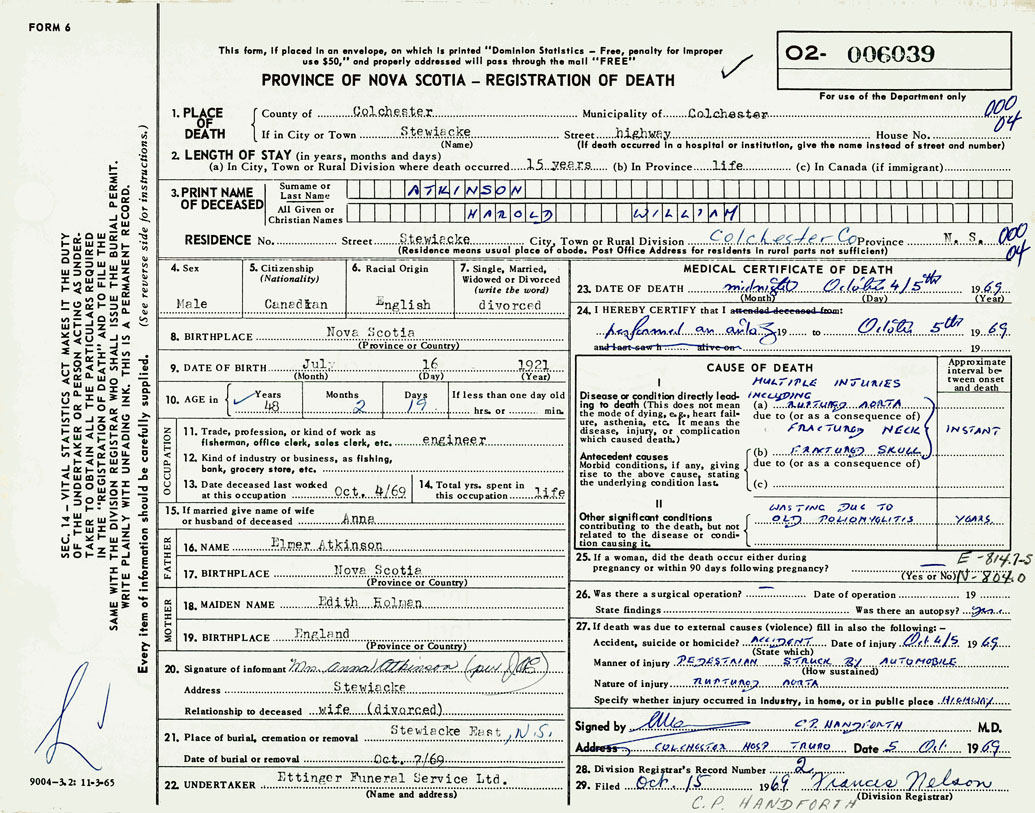 FORM 6
This form, if placed in an envelope, on which is printed "Dominion Statistics – Free, penalty for improper
use $50," and properly addressed will pass through the mail "FREE"
PROVINCE OF NOVA SCOTIA – REGISTRATION OF DEATH
02- 006039
For use of the Department only
000
04
1. PLACE OF DEATH
County of Colchester Municipality of Colchester
If in City or Town Stewiacke Street highway House No.
(Name) (If death occurred in a hospital or institution, give the name instead of street and number)
2. LENGTH OF STAY (in years, months and days)
(a) In City, Town or Rural Division where death occurred 15 years (b) In Province life (c) In Canada (if immigrant)
3. PRINT NAME OF DECEASED
Surname or Last Name ATKINSON
All Given or Christian Names HAROLD WILLIAM
RESIDENCE No. Street Stewiacke City, Town or Rural Division Colchester Co Province N. S.
(Residence means usual place of abode. Post Office Address for residents in rural parts not sufficient)
000
04
4. Sex
Male
5. Citizenship
(Nationality)
Canadian
6. Racial Origin
English
7. Single, Married,
Widowed or Divorced
(write the word)
divorced
8. BIRTHPLACE Nova Scotia
(Province or Country)
9. DATE OF BIRTH July 16 1921
(Month) (Day) (Year)
10. AGE in Years 48 Months 2 Days 19 If less than one day old
hrs. or min.
OCCUPATION
11. Trade, profession, or kind of work as
fisherman, office clerk, sales clerk, etc. engineer
12. Kind of industry or business, as fishing,
bank, grocery store, etc.
13. Date deceased last worked
at this occupation Oct. 4/69
14. Total yrs. spent in
this occupation life
15. If married give name of wife
or husband of deceased Anna
FATHER
16. NAME Elmer Atkinson
17. BIRTHPLACE Nova Scotia
(Province or Country)
MOTHER
18. MAIDEN NAME Edith Holman
19. BIRTHPLACE England
(Province or Country)
20. Signature of informant Mrs. Anna Atkinson
Address Stewiacke
Relationship to deceased wife (divorced)
21. Place of burial, cremation or removal Stewiacke East, N.S.
Date of burial or removal Oct. 7/69
22. UNDERTAKER Ettinger Funeral Service Ltd.
(Name and address)
MEDICAL CERTIFICATE OF DEATH
23. DATE OF DEATH midnight October 4/5th 1969
(Month) (Day) (Year)
24. I HEREBY CERTIFY that I attended deceased from:
performed an 19 to October 5th 1969
and last saw h alive on 19
CAUSE OF DEATH
Approximate
interval be-
tween onset
and death
I
Disease or condition directly lead-
ing to death (This does not mean
the mode of dying, e.g., heart fail-
ure, asthenia, etc. It means the
disease, injury, or complication
which caused death.)
MULTIPLE INJURIES
INCLUDING
(a) RUPTURED AORTA
due to (or as a consequence of)
FRACTURED NECK
INSTANT
Antecedent causes
Morbid conditions, if any, giving
rise to the above cause, stating
the underlying condition last.
(b) FRACTURED SKULL
due to (or as a consequence of)
(c)
II
Other significant conditions
contributing to the death, but not
related to the disease or condi-
tion causing it.
WASTING DUE TO
OLD POLIOMYLITIS
YEARS
25. If a woman, did the death occur either during
pregnancy or within 90 days following pregnancy?
(Yes or No)
E-814.7-5
N-804.0
26. Was there a surgical operation? — Date of operation 19
State findings Was there an autopsy?
27. If death was due to external causes (violence) fill in also the following:–
Accident, suicide or homicide? ACCIDENT Date of injury Oct 4/5 1969
(State which)
Manner of injury PEDESTRIAN STRUCK BY AUTOMOBILE
(How sustained)
Nature of injury RUPTURED AORTA
Specify whether injury occurred in industry, in home, or in public place HIGHWAY
Signed by C.P. HANDFORTH M.D.
Address COLCHESTER HOSP TRURO Date 5 Oct. 1969
28. Division Registrar's Record Number 2
29. Filed Oct. 15 1969 Frances Nelson
(Division Registrar)
C.P. HANDFORTH
SEC. 14 – VITAL STATISTICS ACT MAKES IT THE DUTY
OF THE UNDERTAKER OR PERSON ACTING AS UNDER-
TAKER TO OBTAIN ALL THE PARTICULARS REQUIRED
IN THE "REGISTRATION OF DEATH" AND TO FILE THE
SAME WITH THE DIVISION REGISTRAR WHO SHALL ISSUE THE BURIAL PERMIT.
WRITE PLAINLY WITH UNFADING INK. THIS IS A PERMANENT RECORD.
Every item of information should be carefully supplied. (See reverse side for instructions.)
9004-3.2: 11-3-65